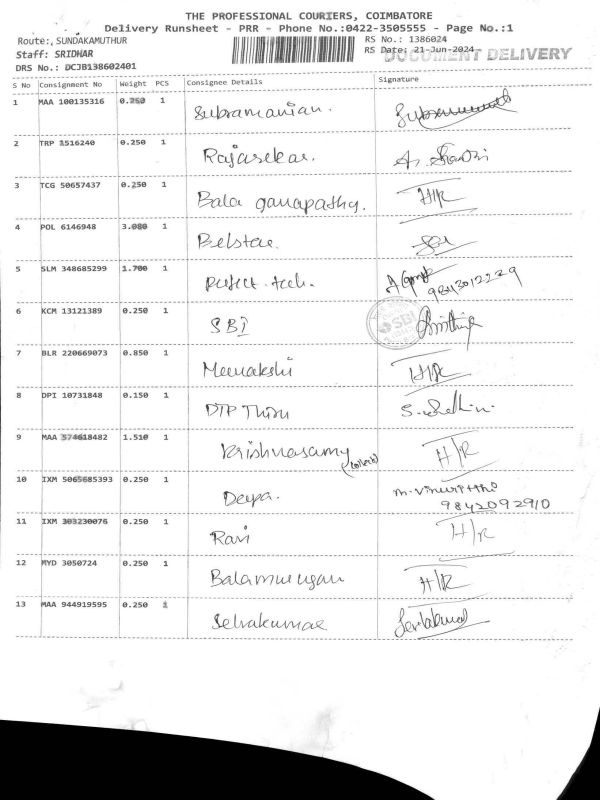 THE PROFESSIONAL COURIERS, COIMBATORE
Delivery Runsheet - PRR - Phone No.:0422-3505555 - Page No.:1
Route:, SUNDAKAMUTHUR
RS No.: 1386024
Staff: SRIDHAR
RS Date: 21-Jun-2024
DOCUMENT DELIVERY
DRS No.: DCJB138602401
S No Consignment No Weight PCS Consignee Details Signature
1 MAA 100135316 0.250 1 Subramanian.
2 TRP 1516240 0.250 1 Rajasekar.
3 TCG 50657437 0.250 1 Bala ganapathy. H/R
4 POL 6146948 3.080 1 Belstar.
5 SLM 348685299 1.700 1 Perfect tech. 9843012229
6 KCM 13121389 0.250 1 SBI SBI
7 BLR 220669073 0.850 1 Meenakshi H/R
8 DPI 10731848 0.150 1 DTP Thiru
9 MAA 574618482 1.510 1 Krishnasamy H/R
10 IXM 5065685393 0.250 1 Deepa. 9842092910
11 IXM 303230076 0.250 1 Ravi H/R
12 MYD 3050724 0.250 1 Balamurugan H/R
13 MAA 944919595 0.250 1 Selvakumar